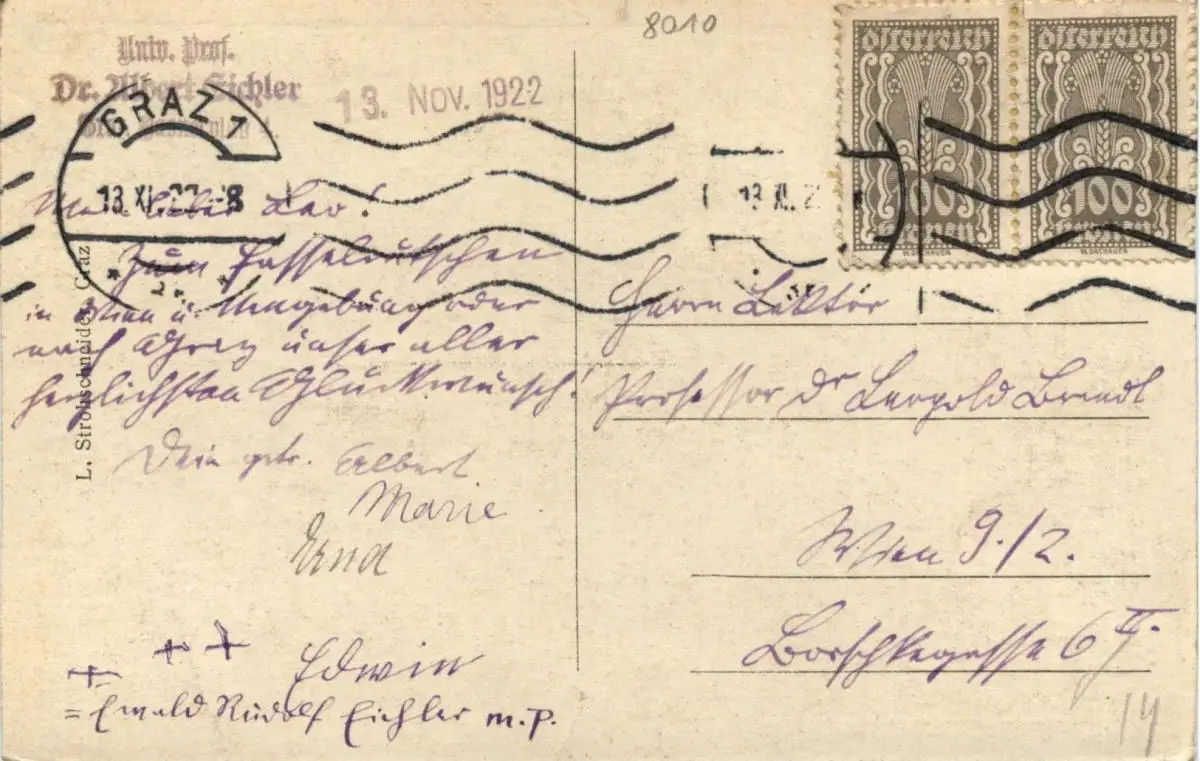 8010
Univ. Prof.
Dr. Albert Eichler
13. NOV. 1922
GRAZ 1
13 XI 22 -8
13 XI. 2
österreich
100
Kronen
österreich
100
Kronen
Mein lieber Leo!
Zum
in Wien u. Umgebung oder
nach Graz unser aller
herzlichsten Glückwunsch!
Dein getr. Albert
Marie
Erna
+ + +
Edwin
= Ewald Rudolf Eichler m.p.
L. Strohschneider, Graz
Herrn Lektor
Professor Dr Leopold Brandl
Wien 9./2.
Borschkegasse 6 II.
14